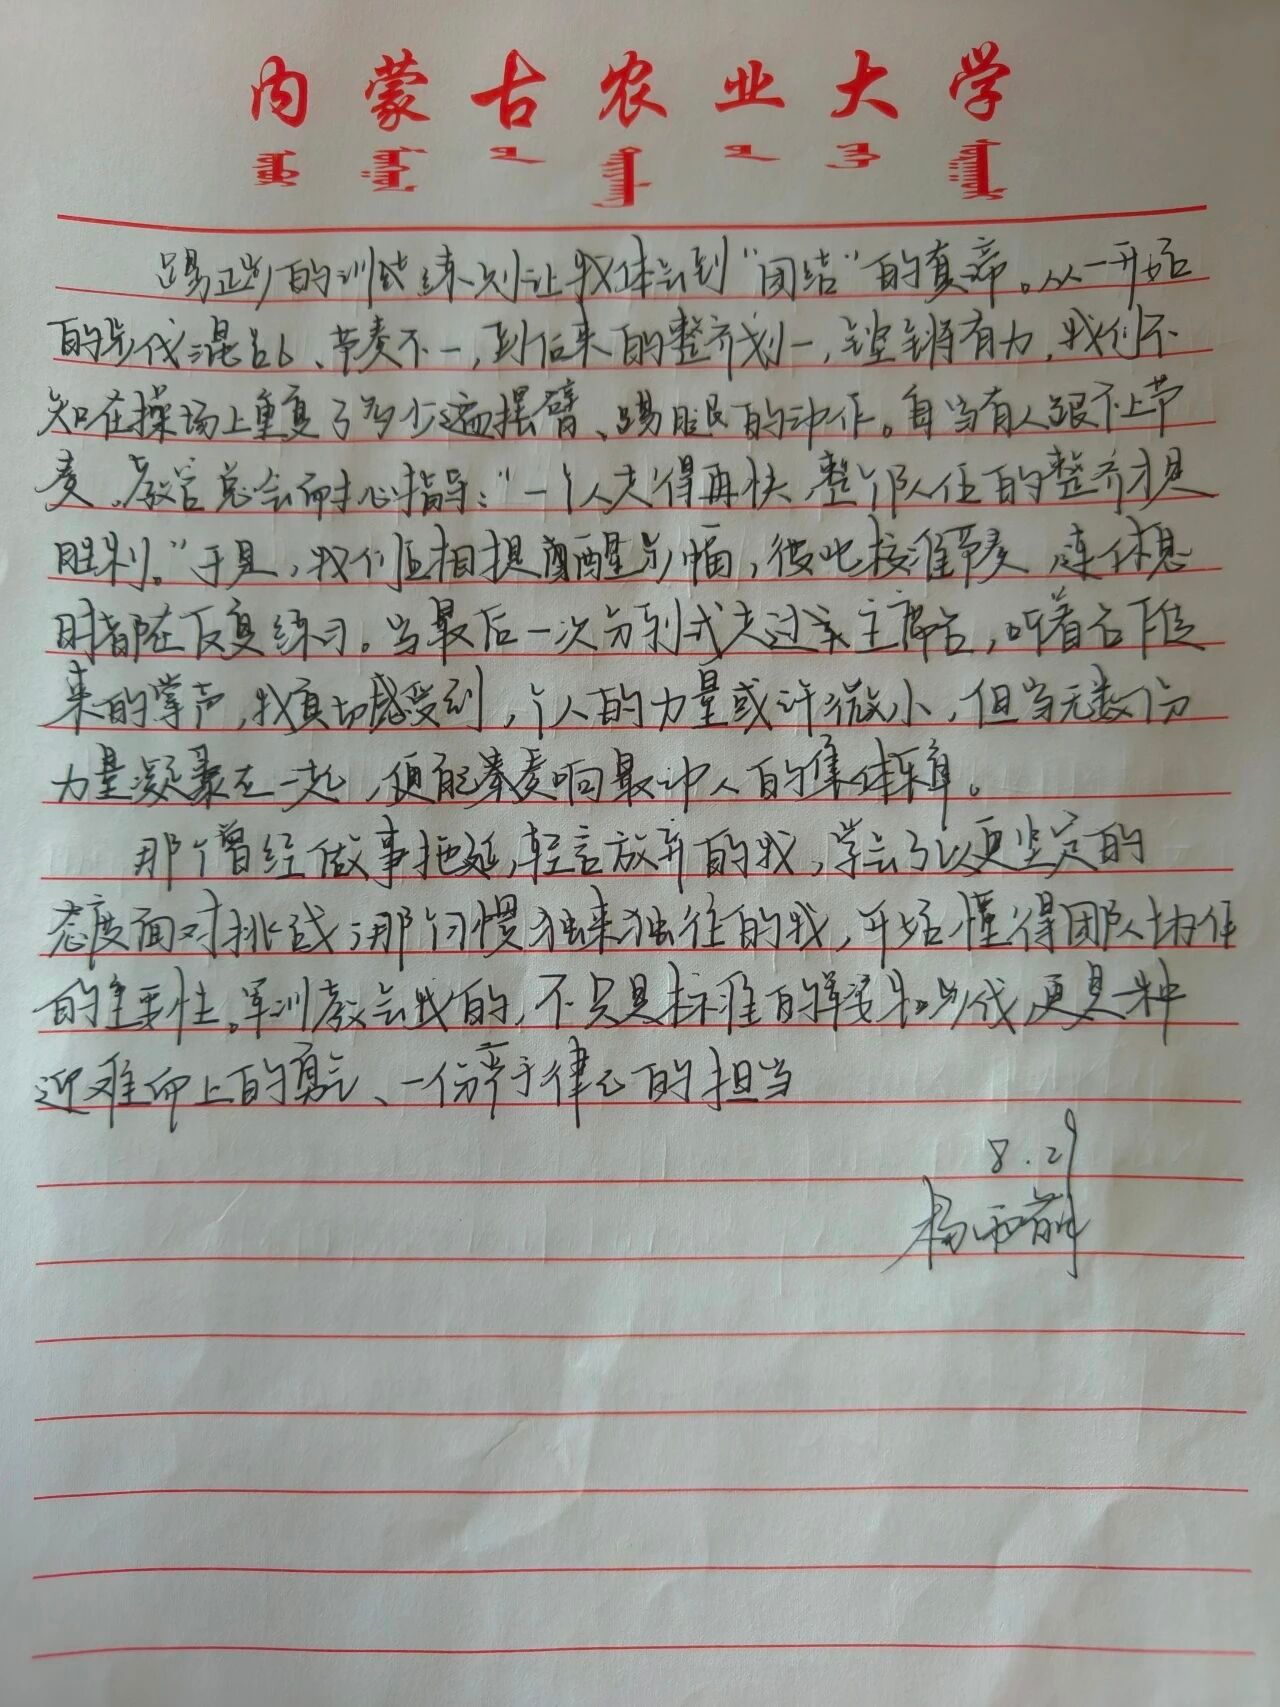 内蒙古农业大学
踢正步的训练则让我体会到“团结”的真谛。从一开始
的步伐混乱、节奏不一，到后来的整齐划一，铿锵有力，我们不
知在操场上重复了多少遍摆臂、踢腿的动作。每当有人跟不上节
奏，教官总会耐心指导：“一个人走得再快，整个队伍的整齐才是
胜利。”于是，我们互相提醒步幅，彼此校准节奏，连休息
时都在反复练习。当最后一次分列式走过主席台，听着台下传
来的掌声，我真切感受到，个人的力量或许微小，但当无数份
力量凝聚在一起，便能奏响最动人的集体乐章。
那个曾经做事拖延，轻言放弃的我，学会了以更坚定的
态度面对挑战；那个习惯独来独往的我，开始懂得团队协作
的重要性。军训教会我的，不只是标准的军姿步伐，更是一种
迎难而上的勇气、一份严于律己的担当
8.29